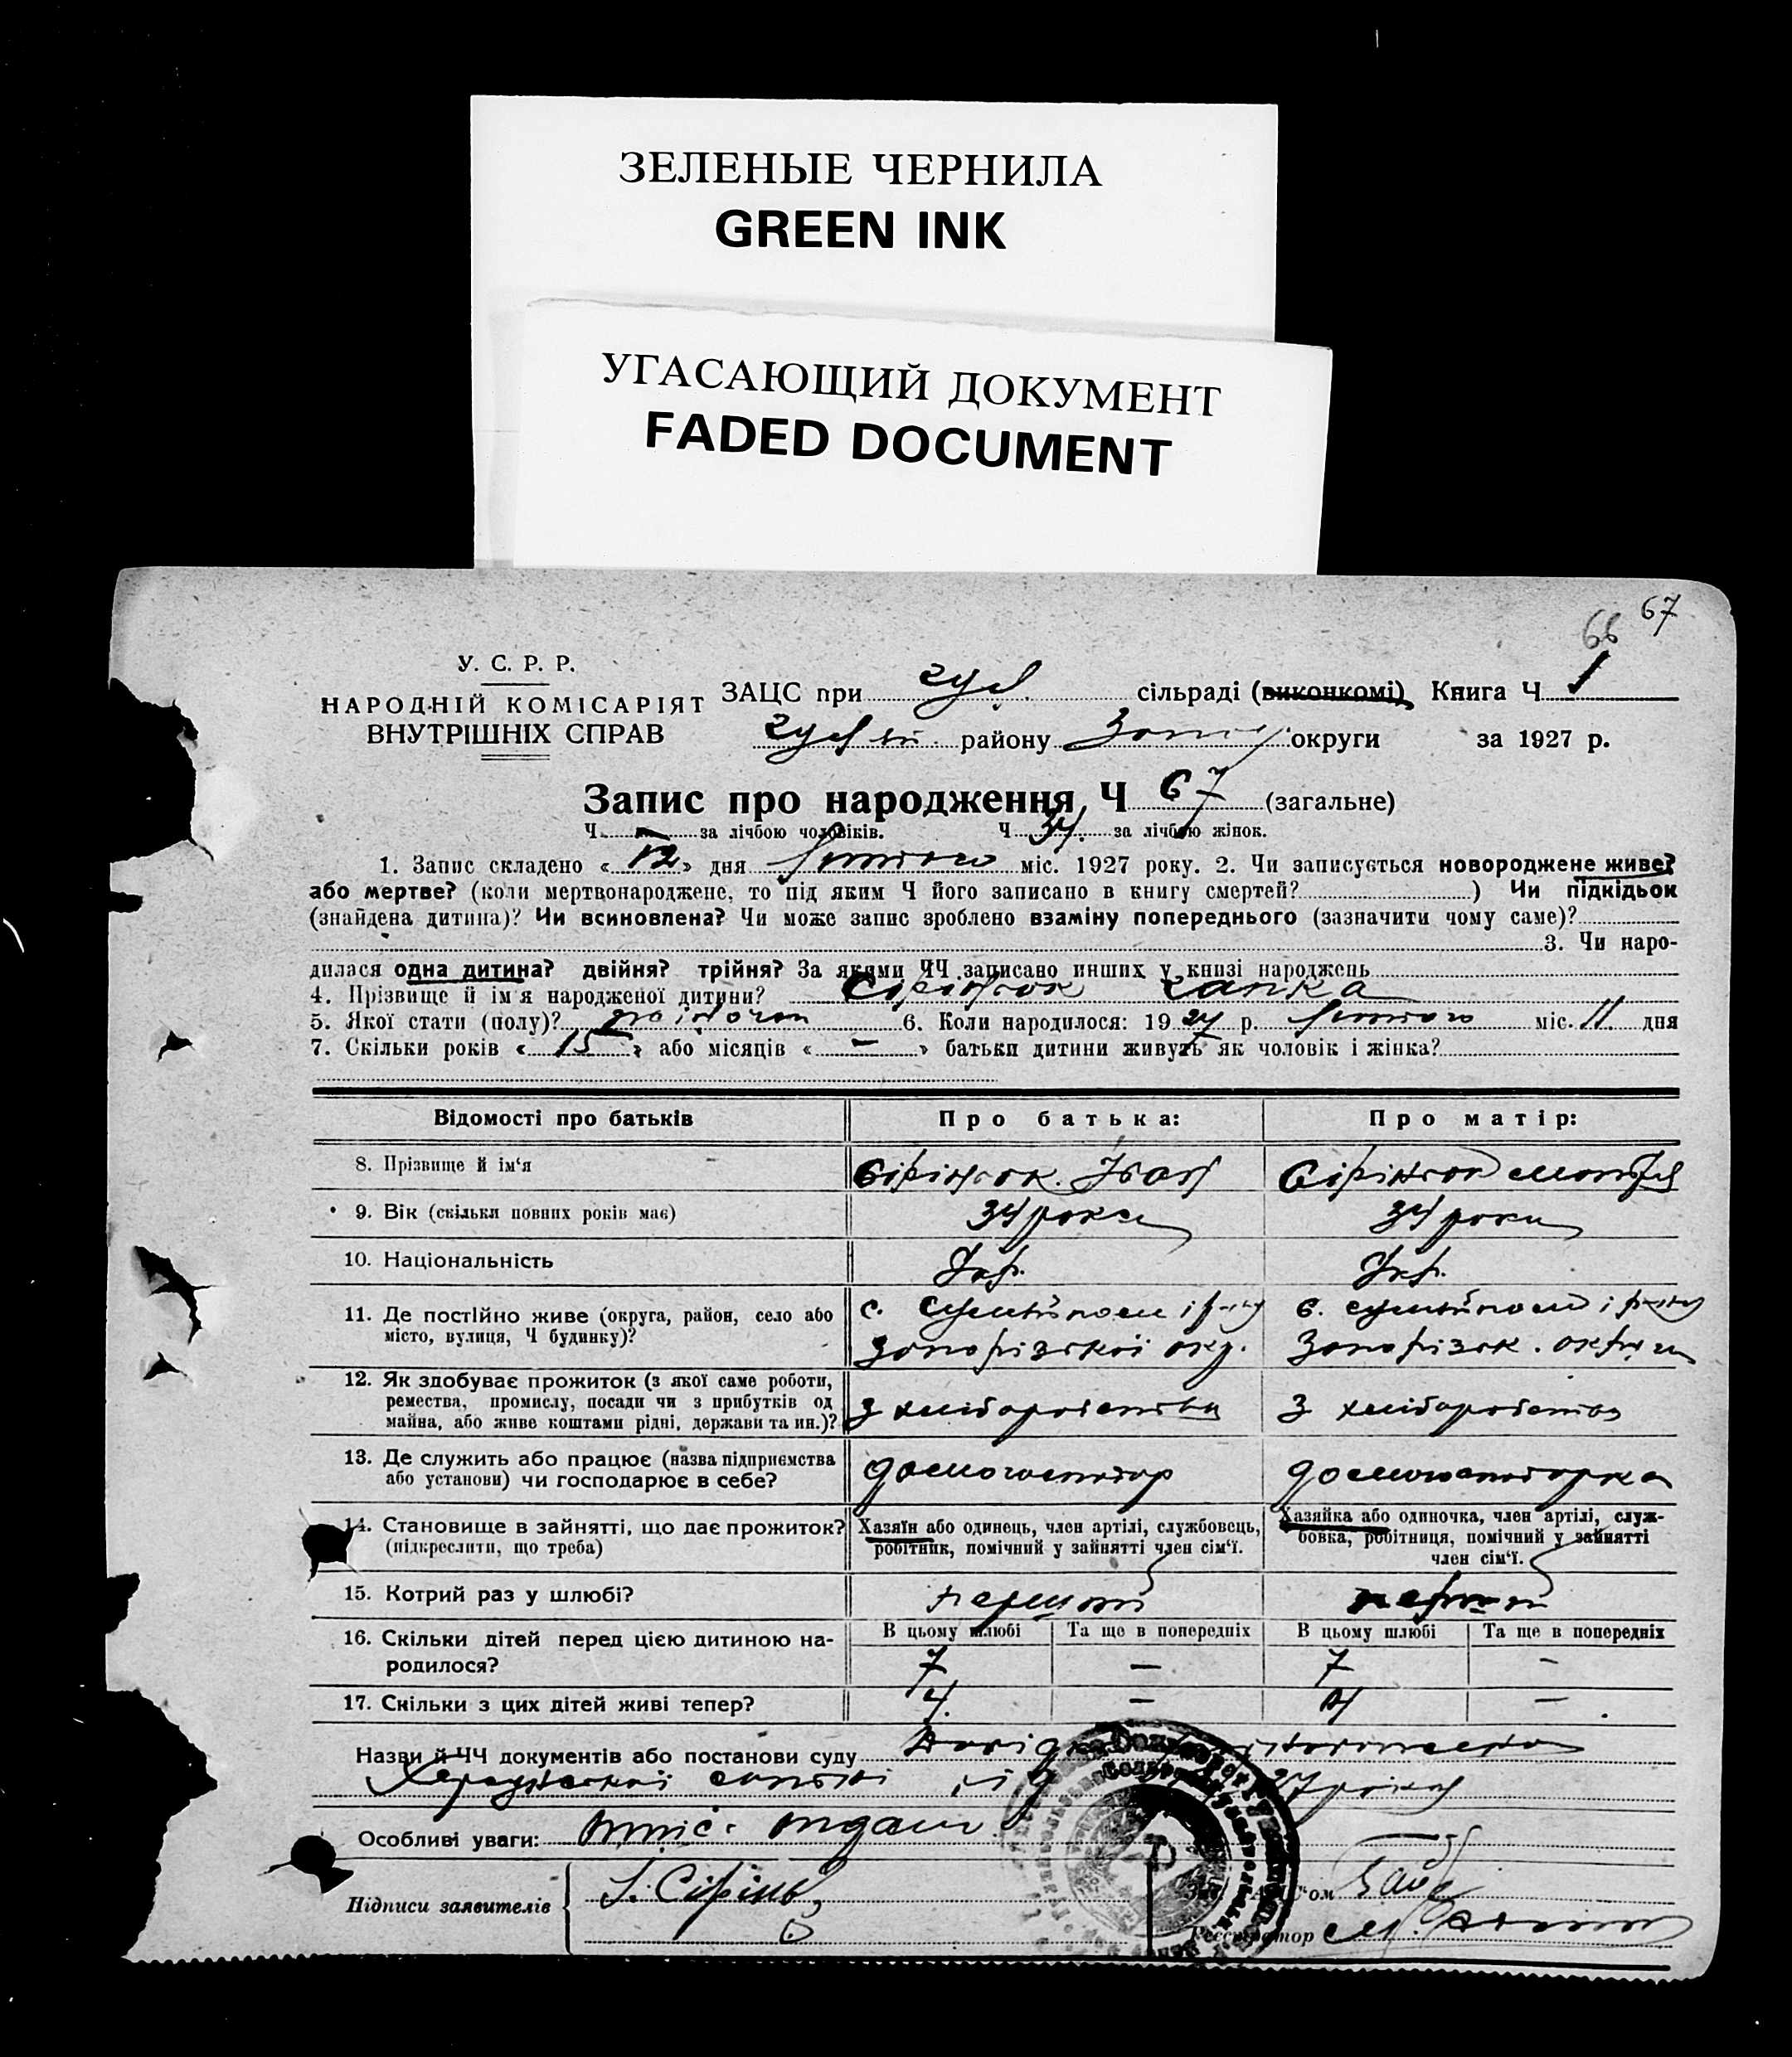 ЗЕЛЕНЫЕ ЧЕРНИЛА
GREEN INK
УГАСАЮЩИЙ ДОКУМЕНТ
FADED DOCUMENT
66 67
У. С. Р. Р.
НАРОДНІЙ КОМІСАРІЯТ
ВНУТРІШНІХ СПРАВ
ЗАЦС при сільраді (виконкомі) Книга Ч 1
району округи за 1927 р.
Запис про народження, Ч 67 (загальне)
Ч. за лічбою чоловіків. Ч. 34. за лічбою жінок.
1. Запис складено «12» дня Лютого міс. 1927 року. 2. Чи записується новороджене живе?
або мертве? (коли мертвонароджене, то під яким Ч його записано в книгу смертей?) Чи підкідьок
(знайдена дитина)? Чи всиновлена? Чи може запис зроблено взаміну попереднього (зазначити чому саме)?
3. Чи наро-
дилася одна дитина? двійня? трійня? За якими ЧЧ записано инших у книзі народжень
4. Прізвище й ім'я народженої дитини? Сірінок Ганка
5. Якої стати (полу)? жіночої 6. Коли народилося: 1927 р. Лютого міс. 11. дня
7. Скільки років «15» або місяців «—» батьки дитини живуть як чоловік і жінка?
Відомості про батьків Про батька: Про матір:
8. Прізвище й ім'я Сірінок Іван Сірінок
9. Вік (скільки повних років має) 34 роки 34 роки
10. Національність Укр. Укр.
11. Де постійно живе (округа, район, село або
місто, вулиця, Ч будинку)?
с. с.
Запорізької окр. Запорізьк. округи
12. Як здобуває прожиток (з якої саме роботи,
ремества, промислу, посади чи з прибутків од
майна, або живе коштами рідні, держави та ин.)?
З хліборобства З хліборобства
13. Де служить або працює (назва підприємства
або установи) чи господарює в себе?
домогосподар домогосподарка
14. Становище в зайнятті, що дає прожиток?
(підкреслити, що треба)
Хазяїн або одинець, член артілі, службовець,
робітник, помічний у зайнятті член сім'ї.
Хазяйка або одиночка, член артілі, служ-
бовка, робітниця, помічний у зайнятті
член сім'ї.
15. Котрий раз у шлюбі? перший перший
16. Скільки дітей перед цією дитиною на-
родилося?
В цьому шлюбі Та ще в попередніх В цьому шлюбі Та ще в попередніх
7 — 7 -
17. Скільки з цих дітей живі тепер? 4. — 4 —
Назви й ЧЧ документів або постанови суду
27 року
Особливі уваги:
Підписи заявителів І. Сірінь
Реєстратор